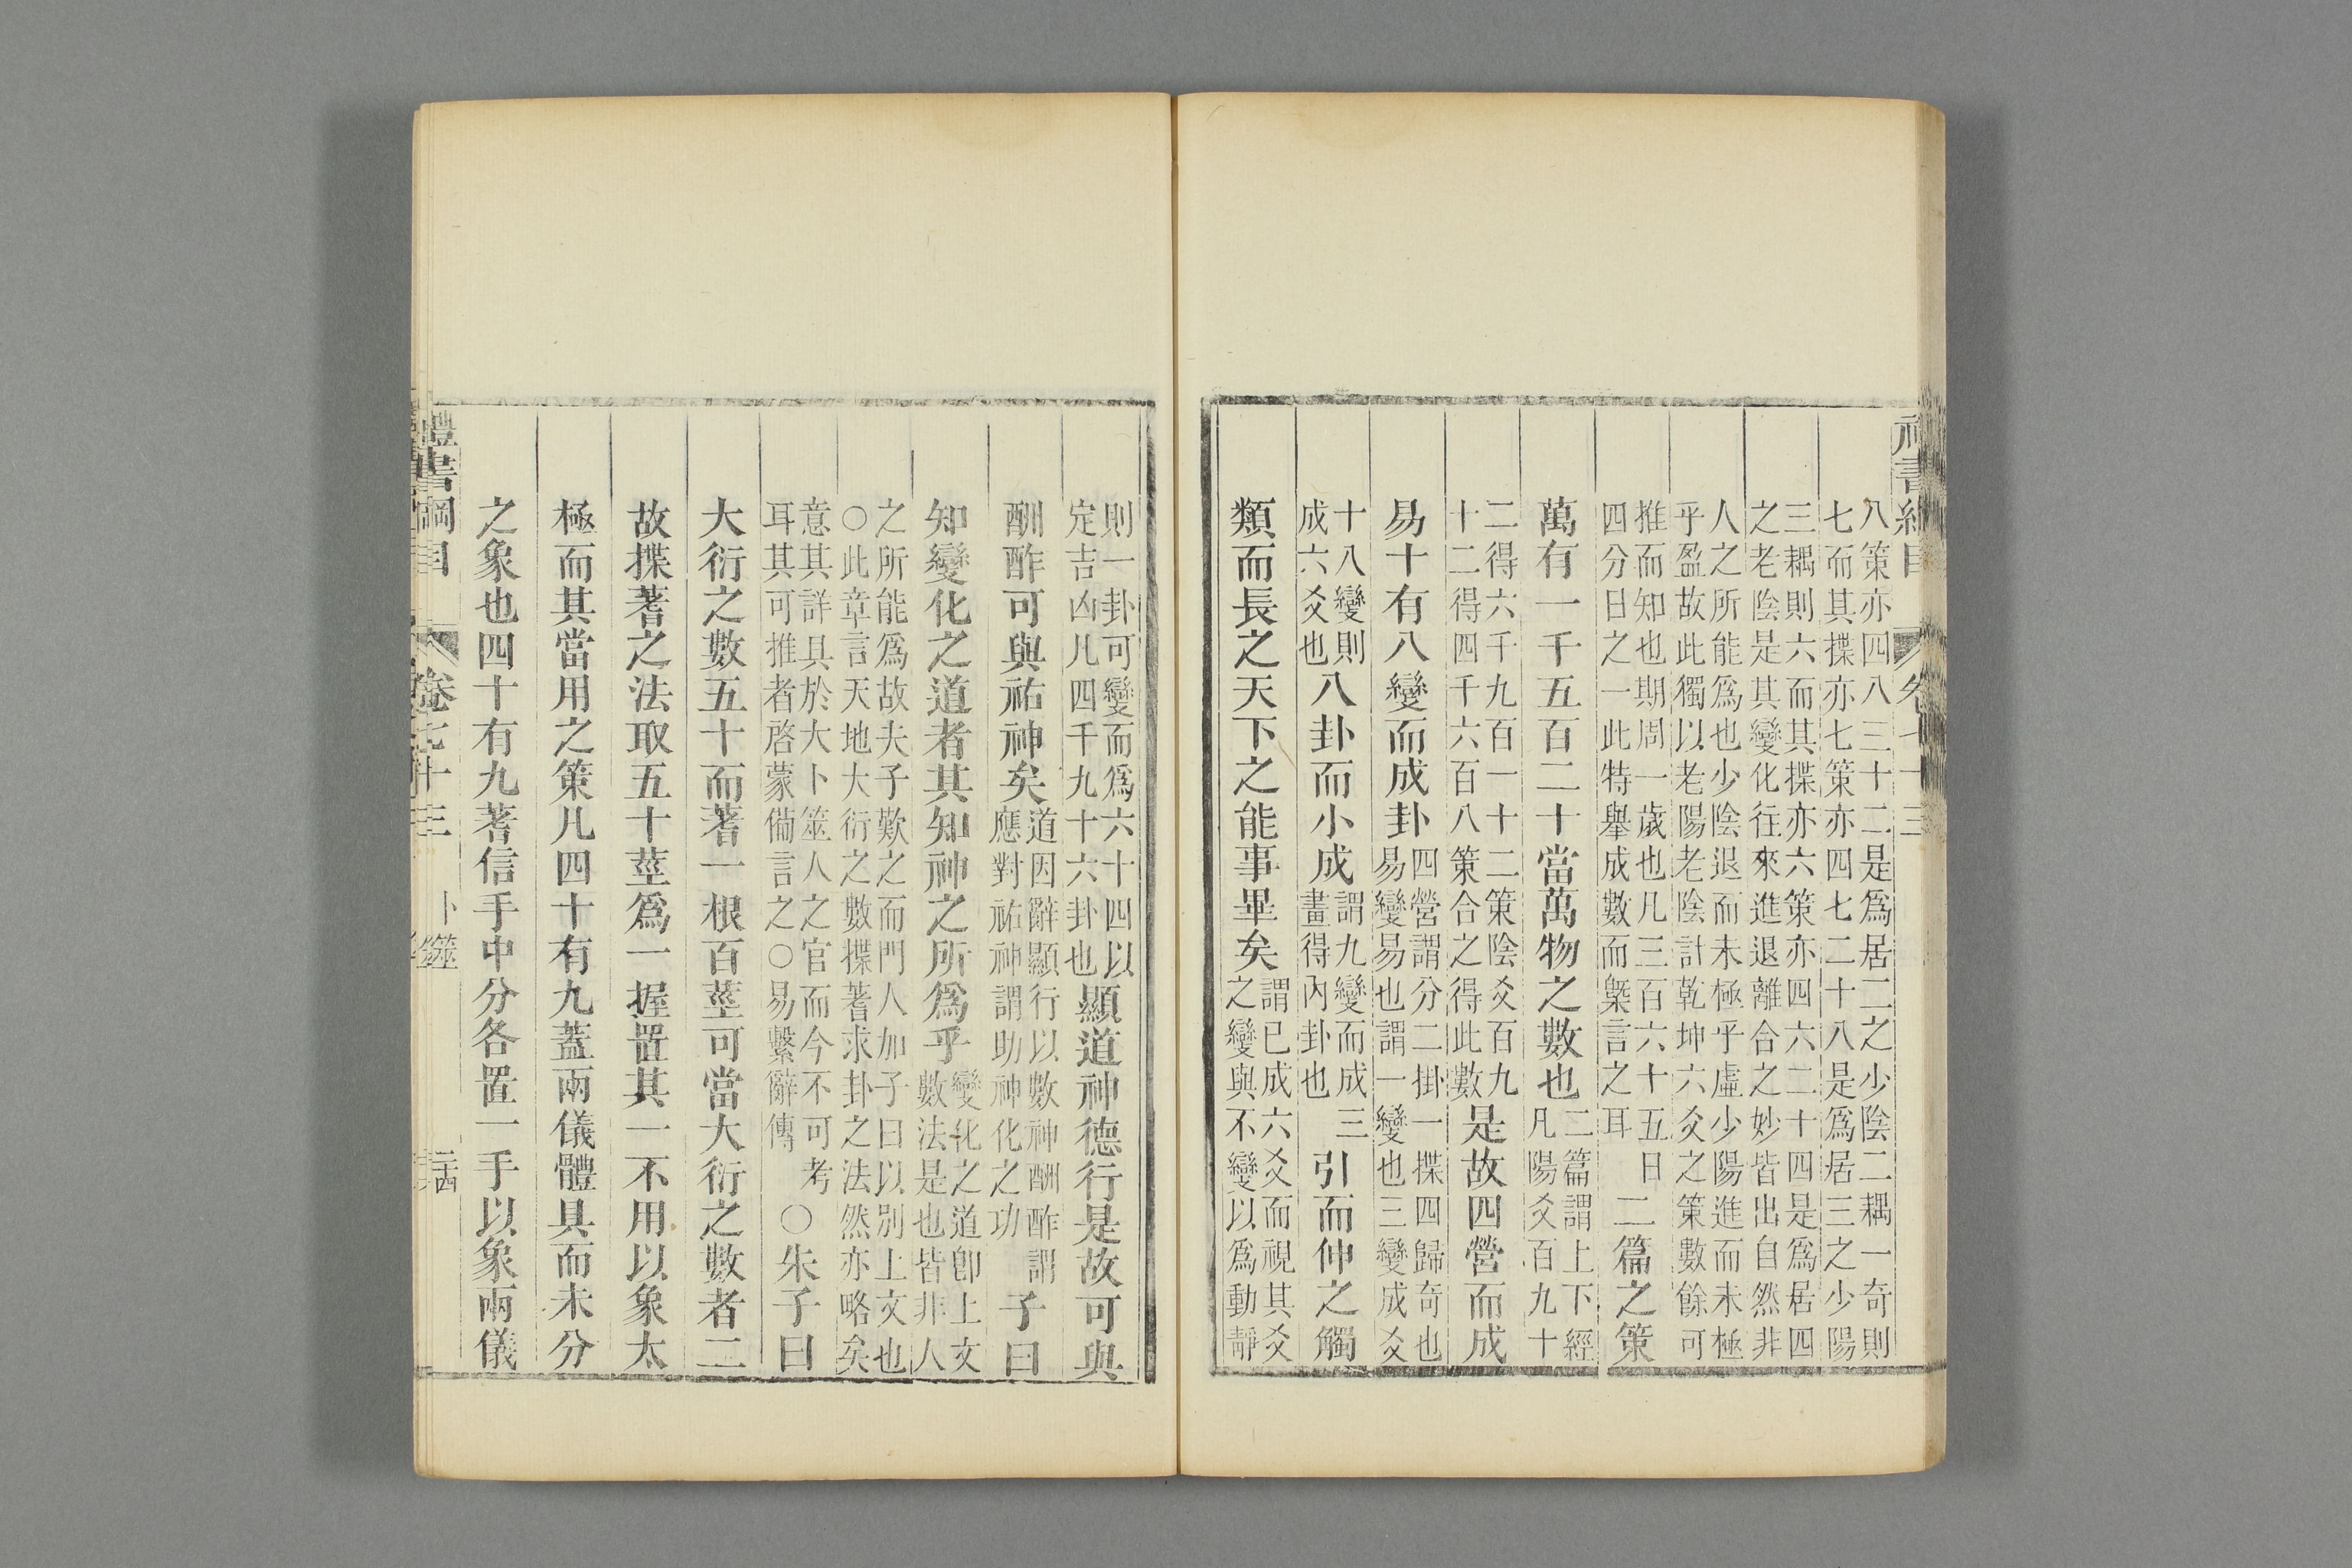 八策亦四八三十二是爲居二之少陰二耦一奇則
七而其揲亦七策亦四七二十八是爲居三之少陽
三耦則六而其揲亦六策亦四六二十四是爲居四
之老陰是其變化往來進退離合之妙皆出自然非
人之所能爲也少陰退而未極乎虛少陽進而未極
乎盈故此獨以老陽老陰計乾坤六爻之策數餘可
推而知也期周一歲也凡三百六十五日
四分日之一此特舉成數而槩言之耳
二篇之策
萬有一千五百二十當萬物之數也
二篇謂上下經
凡陽爻百九十
二得六千九百一十二策陰爻百九
十二得四千六百八策合之得此數
是故四營而成
易十有八變而成卦
四營謂分二掛一揲四歸奇也
易變易也謂一變也三變成爻
十八變則
成六爻也
八卦而小成
謂九變而成三
畫得內卦也
引而伸之觸
類而長之天下之能事畢矣
謂已成六爻而視其爻
之變與不變以爲動靜
則一卦可變而爲六十四以
定吉凶凡四千九十六卦也
顯道神德行是故可與
酬酢可與祐神矣
道因辭顯行以數神酬酢謂
應對祐神謂助神化之功
子曰
知變化之道者其知神之所爲乎
變化之道卽上文
數法是也皆非人
之所能爲故夫子歎之而門人加子曰以別上文也
○此章言天地大衍之數揲蓍求卦之法然亦略矣
意其詳具於大卜筮人之官而今不可考
耳其可推者啓蒙備言之○易繫辭傳
○朱子曰
大衍之數五十而蓍一根百莖可當大衍之數者二
故揲蓍之法取五十莖爲一握置其一不用以象太
極而其當用之策凡四十有九蓋兩儀體具而未分
之象也四十有九蓍信手中分各置一手以象兩儀
禮書綱目 卷七十三 卜筮